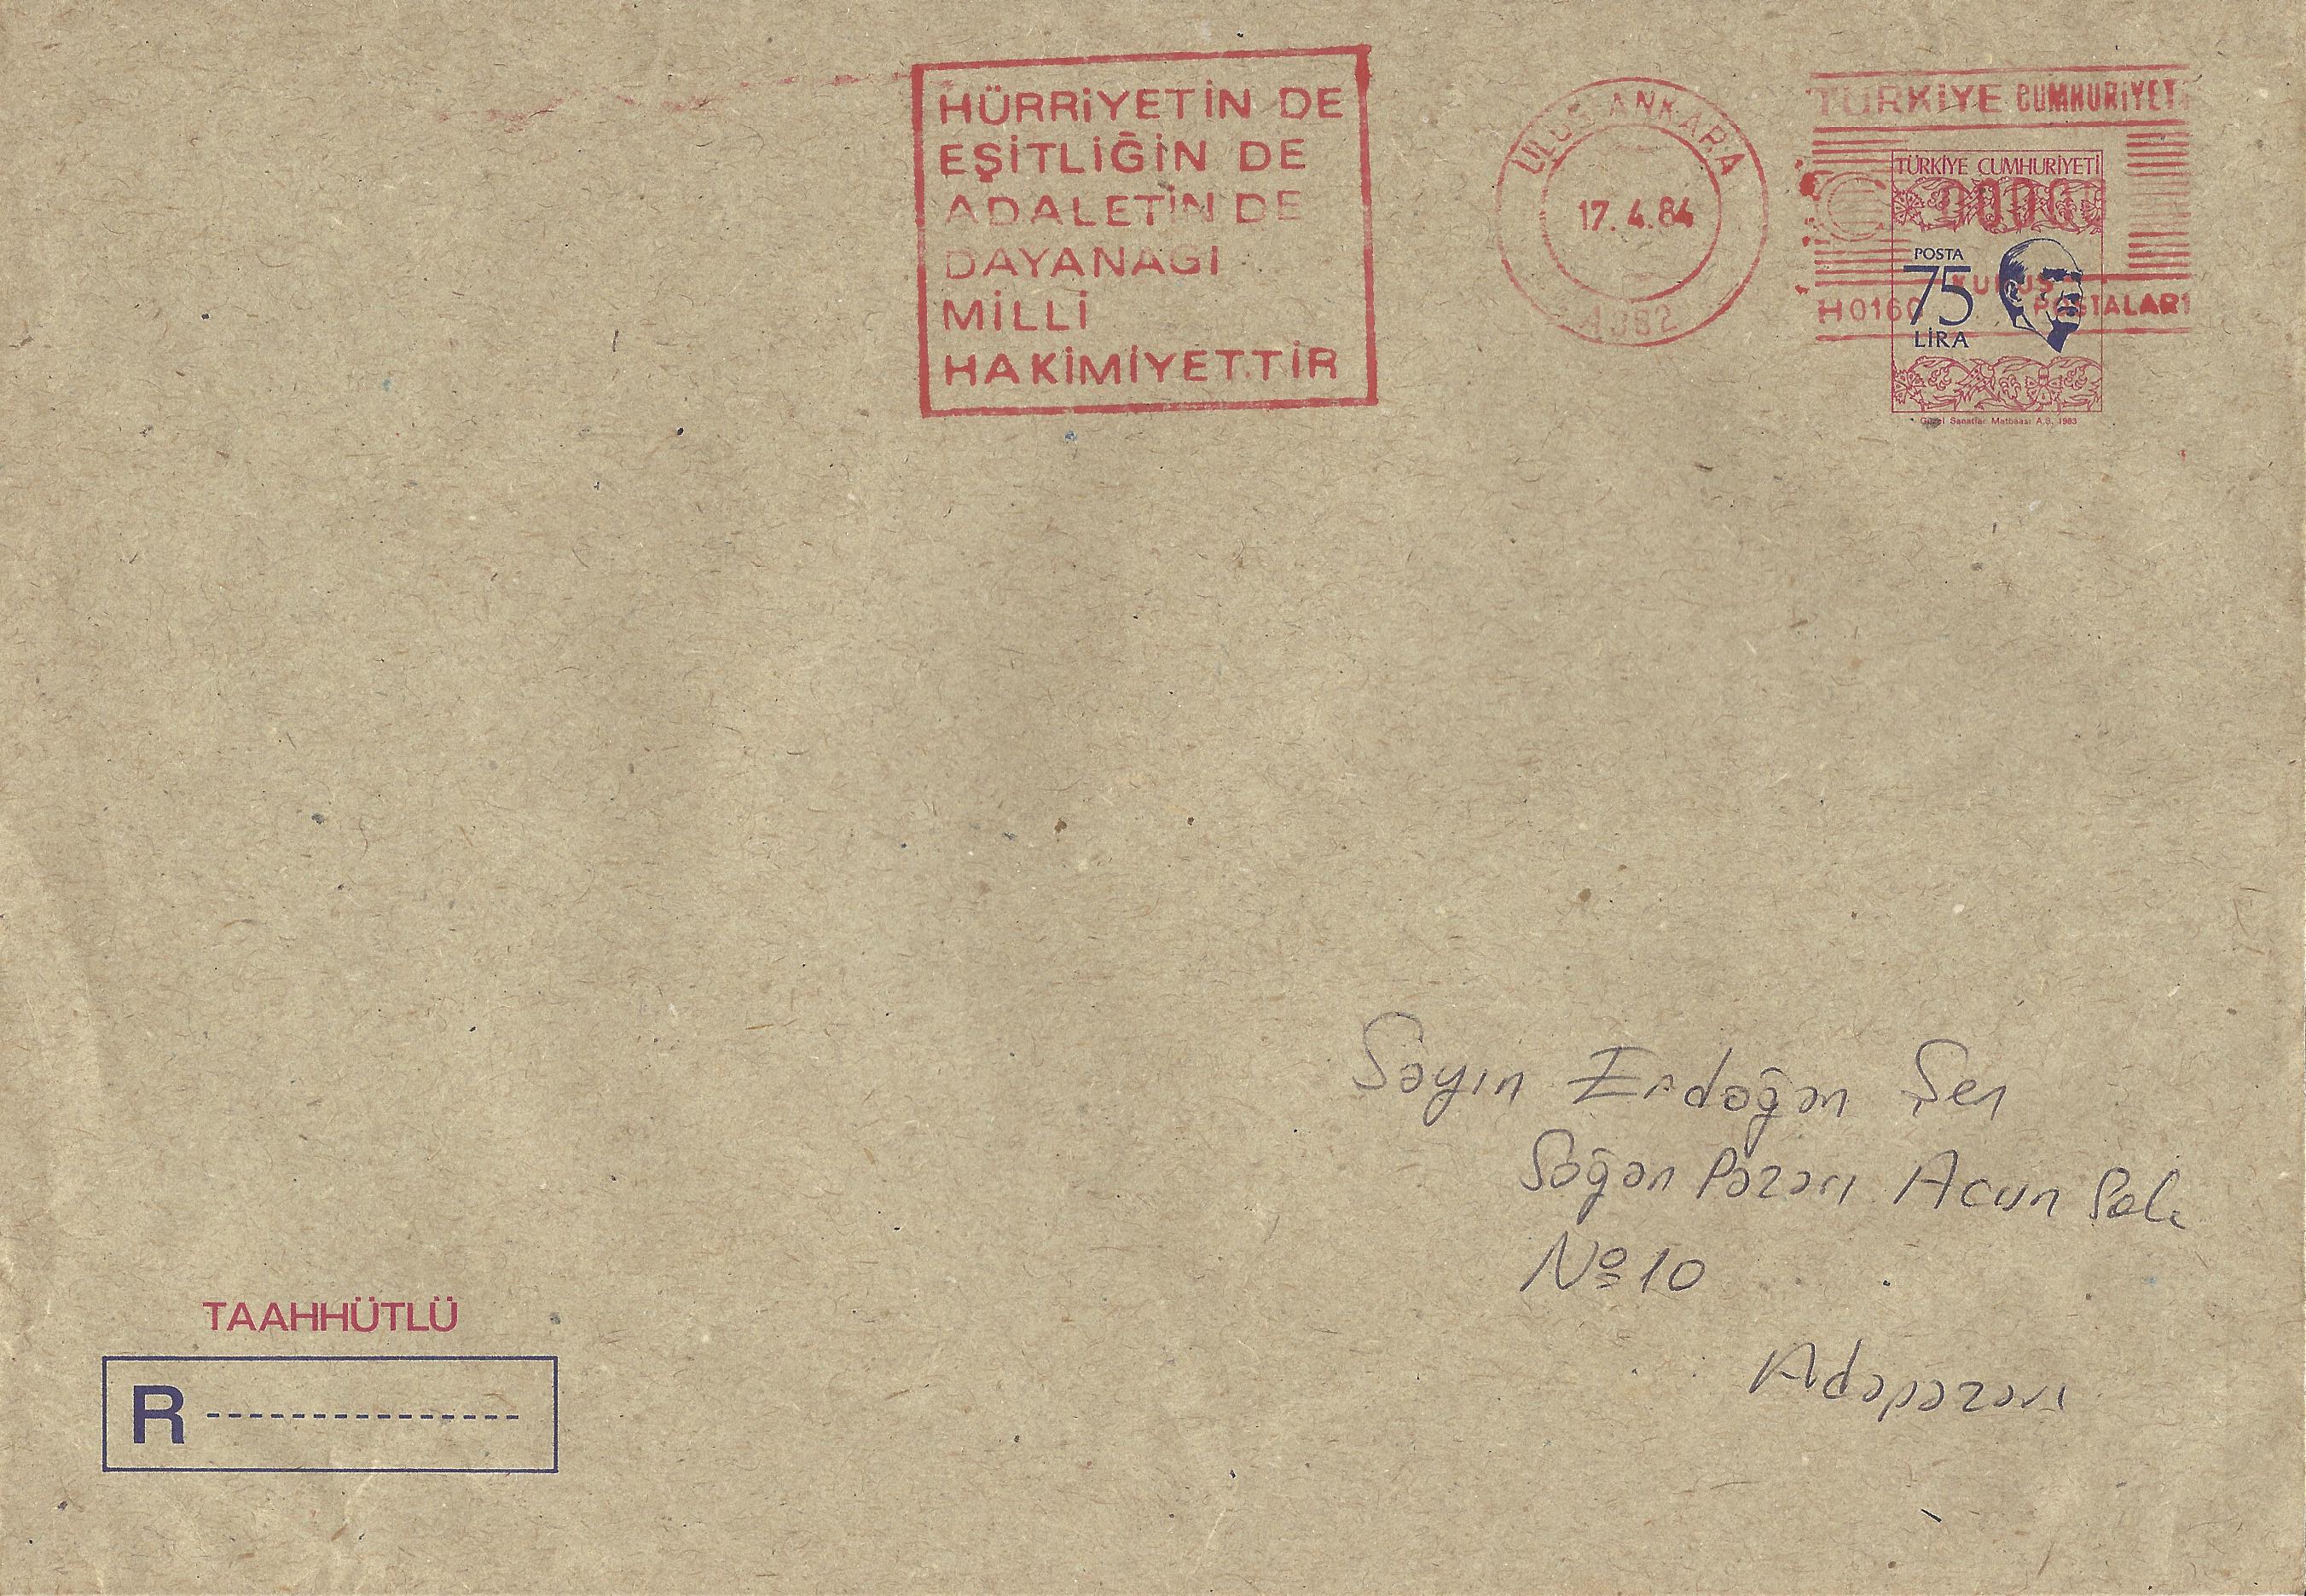 HÜRRİYETİN DE
EŞİTLİĞİN DE
ADALETİN DE
DAYANAĞI
MİLLİ
HAKİMİYETTİR
ULUS ANKARA
17.4.84
A082
TÜRKİYE CUMHURİYETİ
0000
KURUŞ
H0160 POSTALARI
TÜRKİYE CUMHURİYETİ
POSTA
75
LİRA
Güzel Sanatlar Matbaası A.Ş. 1983
Sayın Erdoğan Şen
Soğan Pazarı Acun
No 10
Adapazarı
TAAHHÜTLÜ
R